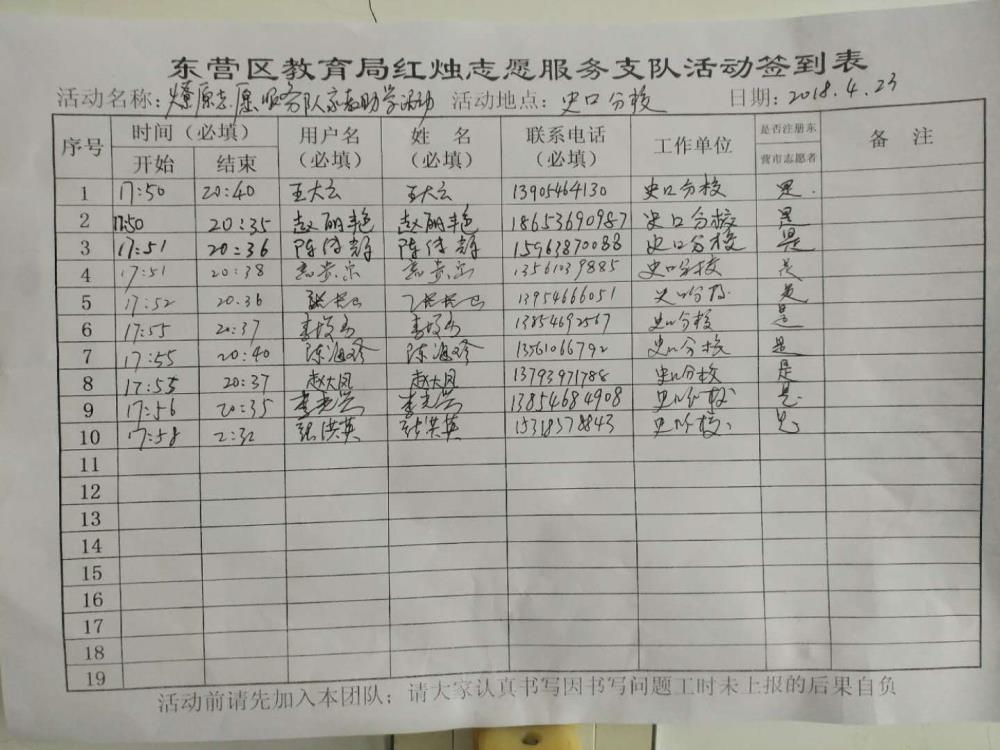 东营区教育局红烛志愿服务支队活动签到表
活动名称：燎原志愿服务队家教助学活动 活动地点：史口分校 日期：2018.4.23
序号 时间（必填） 用户名（必填） 姓 名（必填） 联系电话（必填） 工作单位 是否注册东营市志愿者 备 注
开始 结束
1 17:50 20:40 王大云 王大云 13905464130 史口分校 是.
2 17:50 20:35 赵丽艳 赵丽艳 18653690987 史口分校 是
3 17:51 20:36 陈传辉 陈传辉 15963870088 史口分校 是
4 17:51 20:38 13561039885 史口分校 是
5 17:52 20:36 13954666051 史口分校 是
6 17:55 20:37 13854692567 史口分校 是
7 17:55 20:40 陈海珍 陈海珍 13561066792 史口分校 是
8 17:55 20:37 赵大凤 赵大凤 13793971788 史口分校 是
9 17:56 20:35 13854684908 史口分校 是
10 17:58 2:32 张洪英 张洪英 15318378843 史口分校 是
11
12
13
14
15
16
17
18
19
活动前请先加入本团队；请大家认真书写因书写问题工时未上报的后果自负